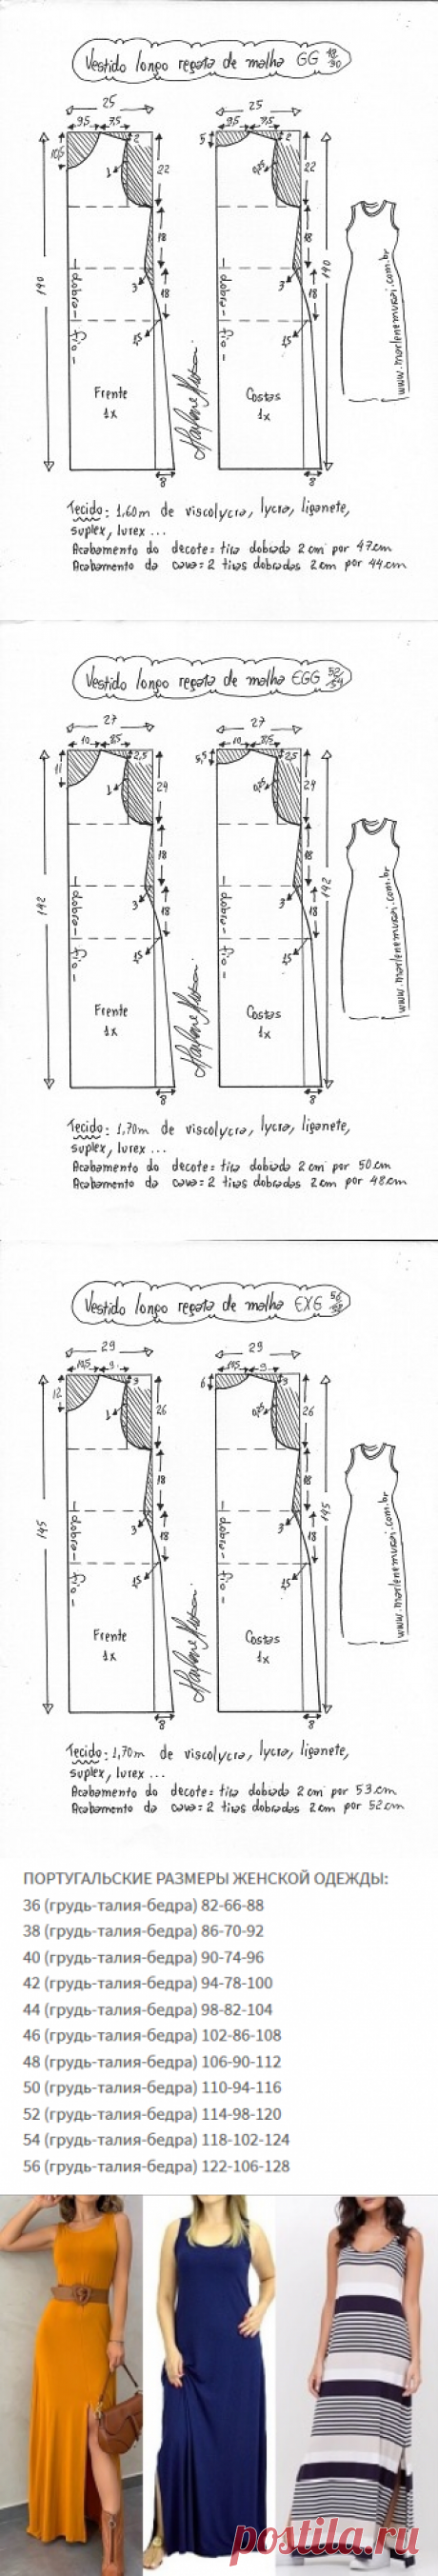 Vestido longo regata de malha GG 48/50
25
25
9,5 7,5
9,5 7,5
10,5
2
5
2
1
22
0,25
22
18
18
190
190
3
18
3
18
-dobra-
-dobra-
fio-
fio-
1,5
1,5
Frente
1x
Costas
1x
8
8
Marlene Mukai
www.marlenemukai.com.br
Tecido: 1,60m de viscolycra, lycra, liganete,
suplex, lurex ...
Acabamento do decote = tira dobrada 2 cm por 47 cm
Acabamento da cava = 2 tiras dobradas 2 cm por 44 cm
Vestido longo regata de malha EGG 52/54
27
27
10 8,5
10 8,5
11
2,5
5,5
2,5
1
24
0,25
24
18
18
192
192
3
18
3
18
-dobra-
-dobra-
fio-
fio-
1,5
1,5
Frente
1x
Costas
1x
8
8
Marlene Mukai
www.marlenemukai.com.br
Tecido: 1,70m de viscolycra, lycra, liganete,
suplex, lurex ...
Acabamento do decote = tira dobrada 2 cm por 50 cm
Acabamento da cava = 2 tiras dobradas 2 cm por 48 cm
Vestido longo regata de malha EXG 56/58
29
29
10,5 9
10,5 9
12
3
6
3
1
26
0,25
26
18
18
195
195
3
18
3
18
-dobra-
-dobra-
fio-
fio-
1,5
1,5
Frente
1x
Costas
1x
8
8
Marlene Mukai
www.marlenemukai.com.br
Tecido: 1,70m de viscolycra, lycra, liganete,
suplex, lurex ...
Acabamento do decote = tira dobrada 2 cm por 53 cm
Acabamento da cava = 2 tiras dobradas 2 cm por 52 cm
ПОРТУГАЛЬСКИЕ РАЗМЕРЫ ЖЕНСКОЙ ОДЕЖДЫ:
36 (грудь-талия-бедра) 82-66-88
38 (грудь-талия-бедра) 86-70-92
40 (грудь-талия-бедра) 90-74-96
42 (грудь-талия-бедра) 94-78-100
44 (грудь-талия-бедра) 98-82-104
46 (грудь-талия-бедра) 102-86-108
48 (грудь-талия-бедра) 106-90-112
50 (грудь-талия-бедра) 110-94-116
52 (грудь-талия-бедра) 114-98-120
54 (грудь-талия-бедра) 118-102-124
56 (грудь-талия-бедра) 122-106-128
postila.ru